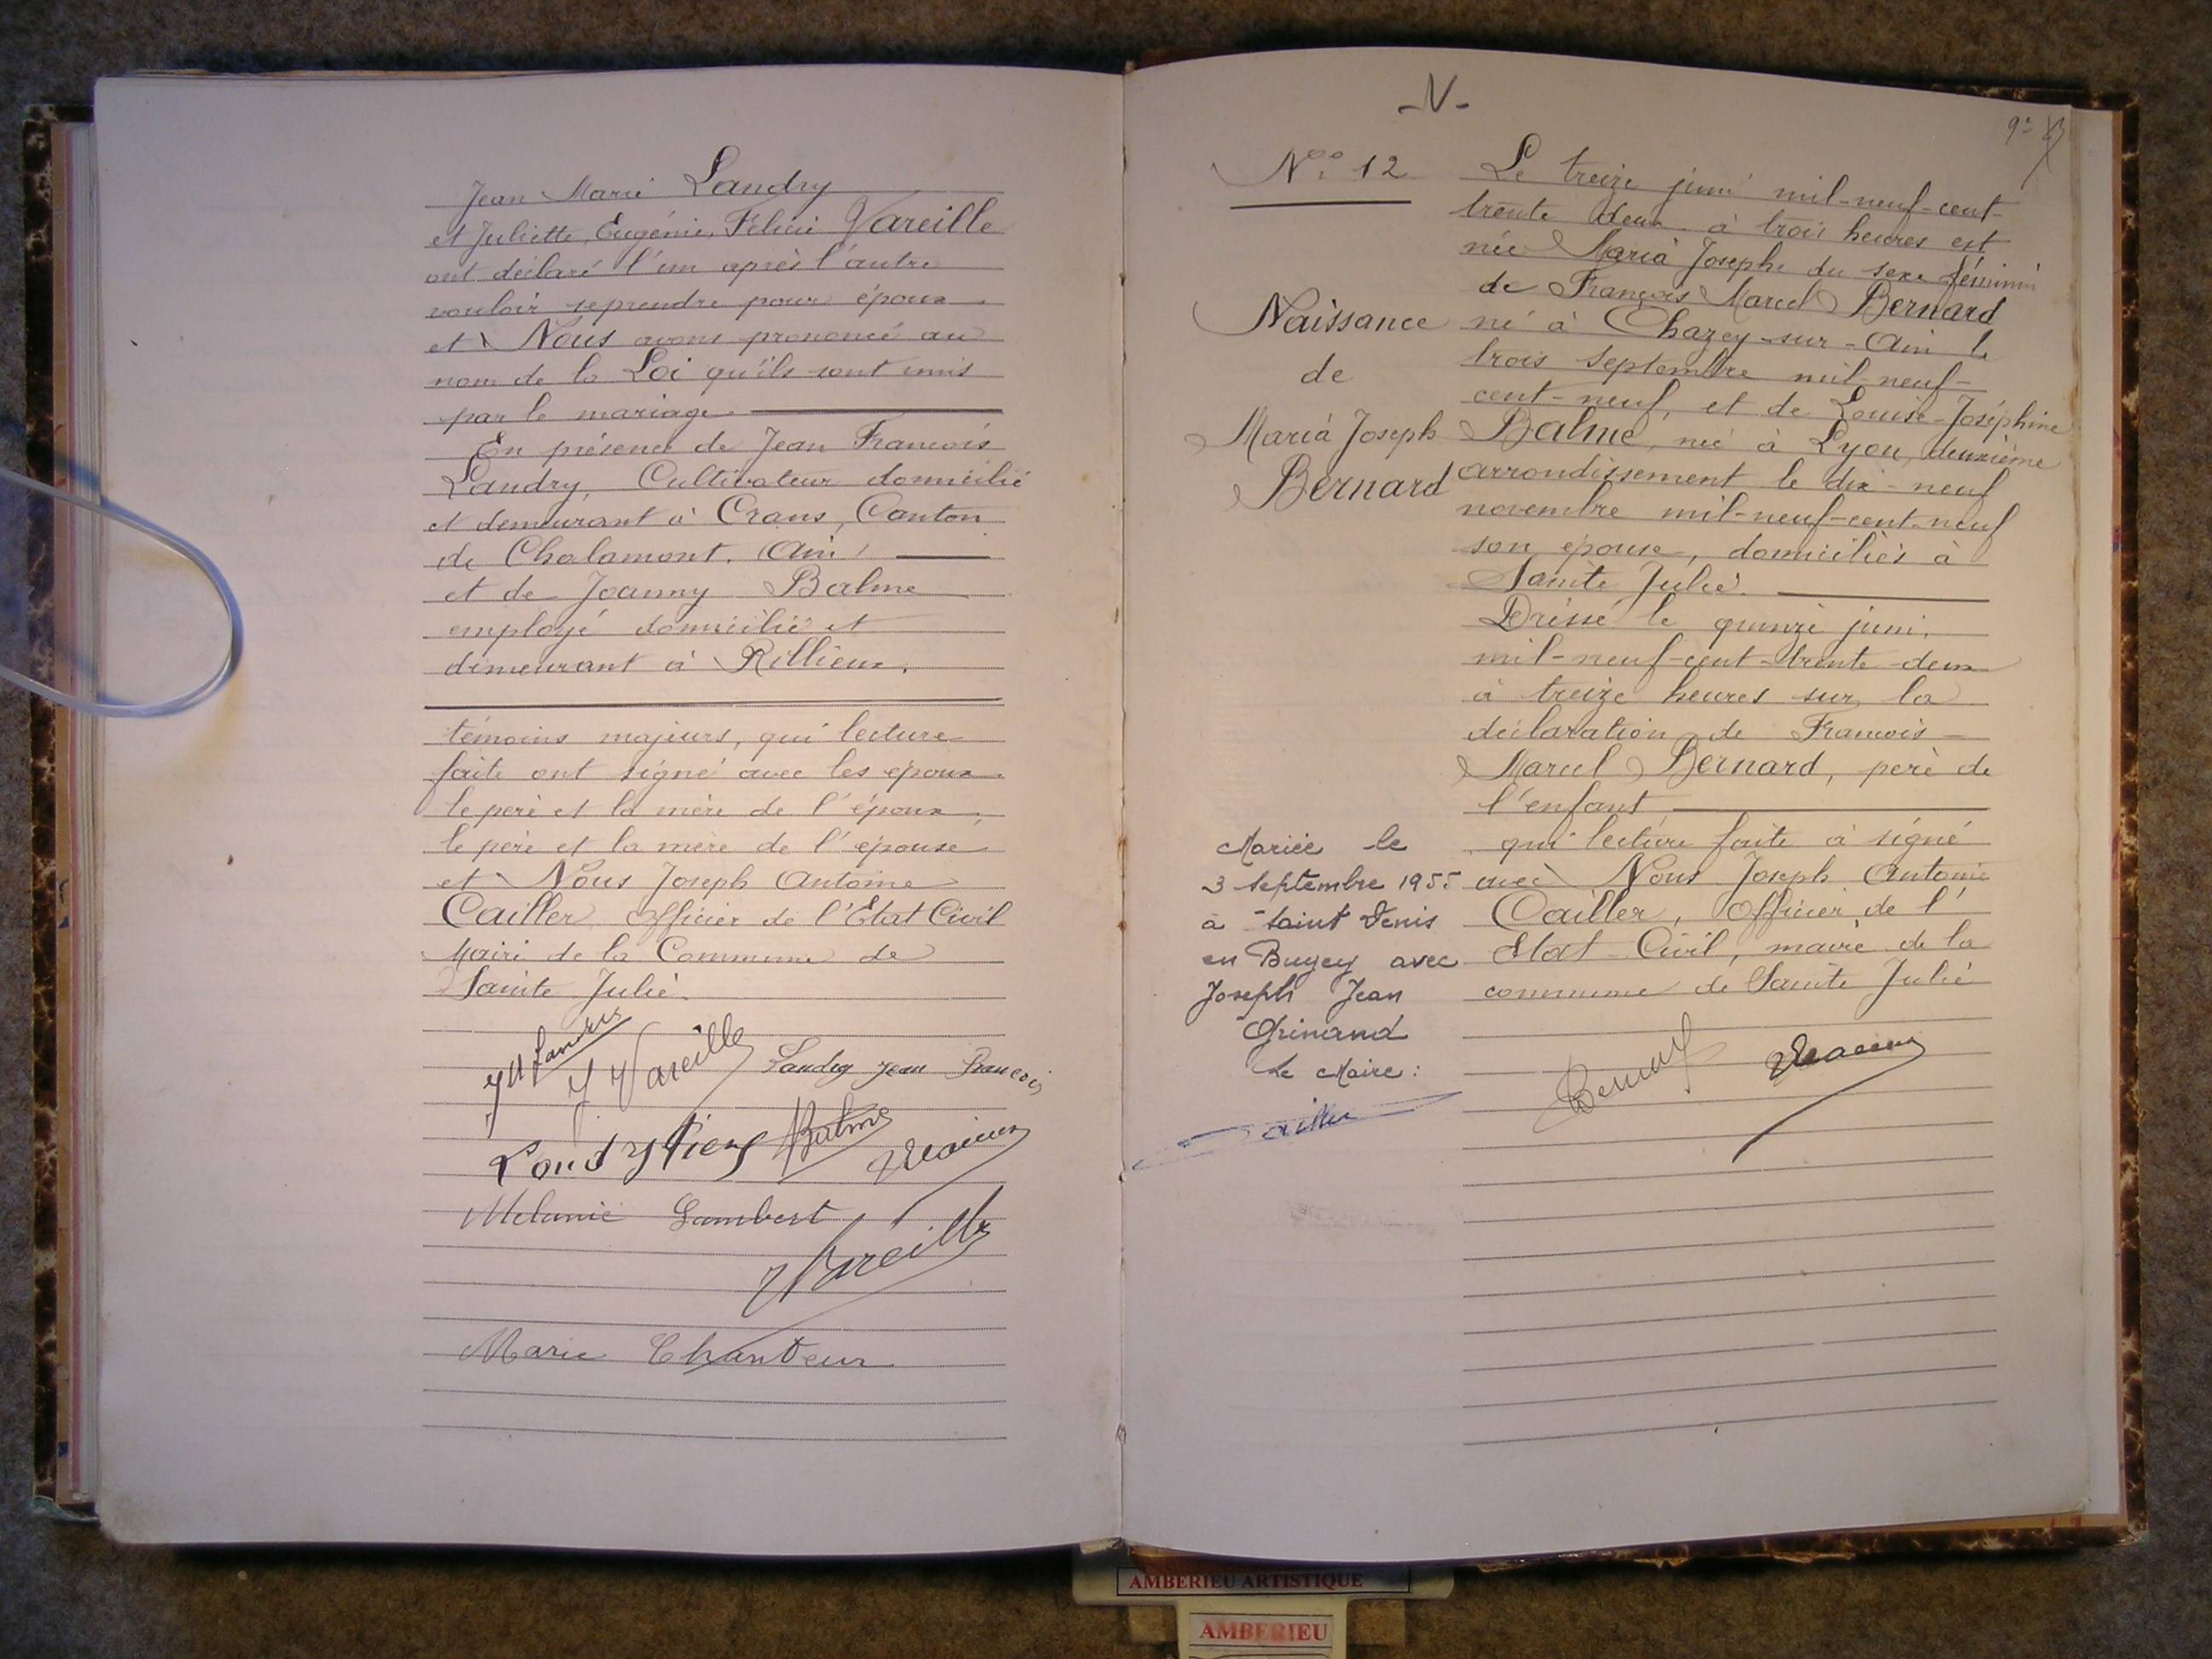 Jean Marie Landry
et Juliette, Eugénie, Félicie Vareille
ont déclaré l'un après l'autre
vouloir se prendre pour époux
et Nous avons prononcé au
nom de la Loi qu'ils sont unis
par le mariage.
En présence de Jean François
Landry, Cultivateur domicilié
et demeurant à Crans, Canton
de Chalamont. (Ain)
et de Joanny Balme
employé domicilié et
demeurant à Rillieux.
témoins majeurs, qui lecture
faite ont signé avec les époux
le père et la mère de l'époux,
le père et la mère de l'épouse
et Nous Joseph Antoine
Cailler, Officier de l'Etat Civil
Maire de la Commune de
Sainte Julie.
JM Landry
J Vareille
Landry Jean François
Landry Balme
Melanie Lambert
Vareille
Marie Chanteur
-N-
9
N° 12
Naissance
de
Maria Joseph
Bernard
Le treize juin mil-neuf-cent-
trente deux à trois heures est
née Maria Josephe du sexe féminin
de François Marcel Bernard
né à Chazey-sur-Ain le
trois septembre mil-neuf-
cent-neuf, et de Louise-Joséphine
Balme, née à Lyon, deuxième
arrondissement le dix-neuf
novembre mil-neuf-cent-neuf
son épouse, domiciliés à
Sainte Julie.
Dressé le quinze juin,
mil-neuf-cent-trente-deux
à treize heures sur la
déclaration de François-
Marcel Bernard, père de
l'enfant
qui lecture faite a signé
avec Nous Joseph Antoine
Cailler, Officier de l'
Etat-Civil, maire de la
commune de Sainte Julie
Bernard
Mariée le
3 septembre 1955
à Saint Denis
en Bugey avec
Joseph Jean
Grinand
Le Maire :
Cailler
AMBERIEU ARTISTIQUE
AMBERIEU